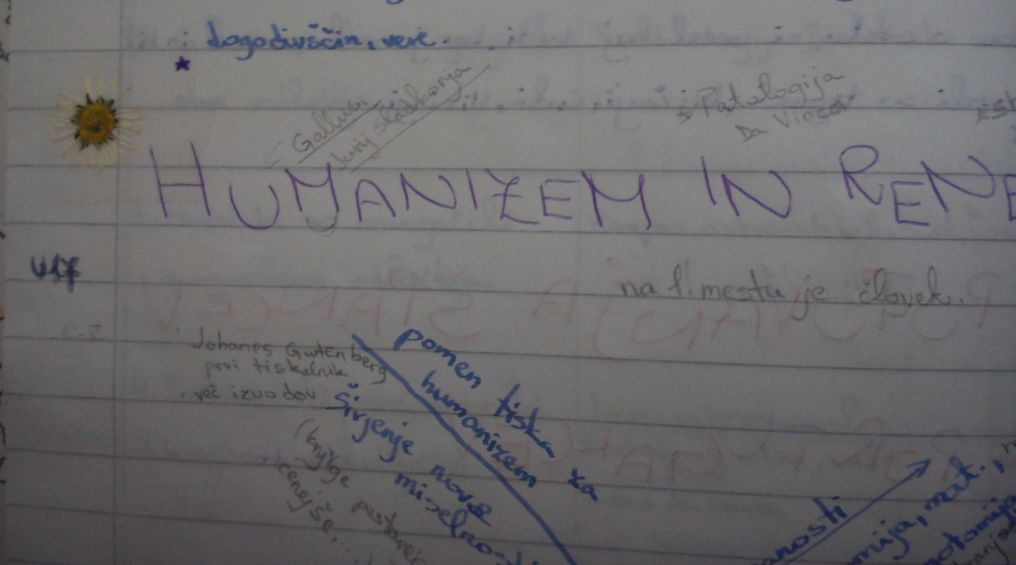 dogodivščin, vere.
Gallus,
Jurij slatkonja
Patologija
Da Vinci
HUMANIZEM IN RENE
U17
na 1. mestu je človek.
Johanes Gutenberg
prvi tiskalnik
več izvodov
pomen tiska za
humanizem
širjenje nove
miselnosti
(knjige postanejo
cenejše, ...
nosti
mija, mat.,